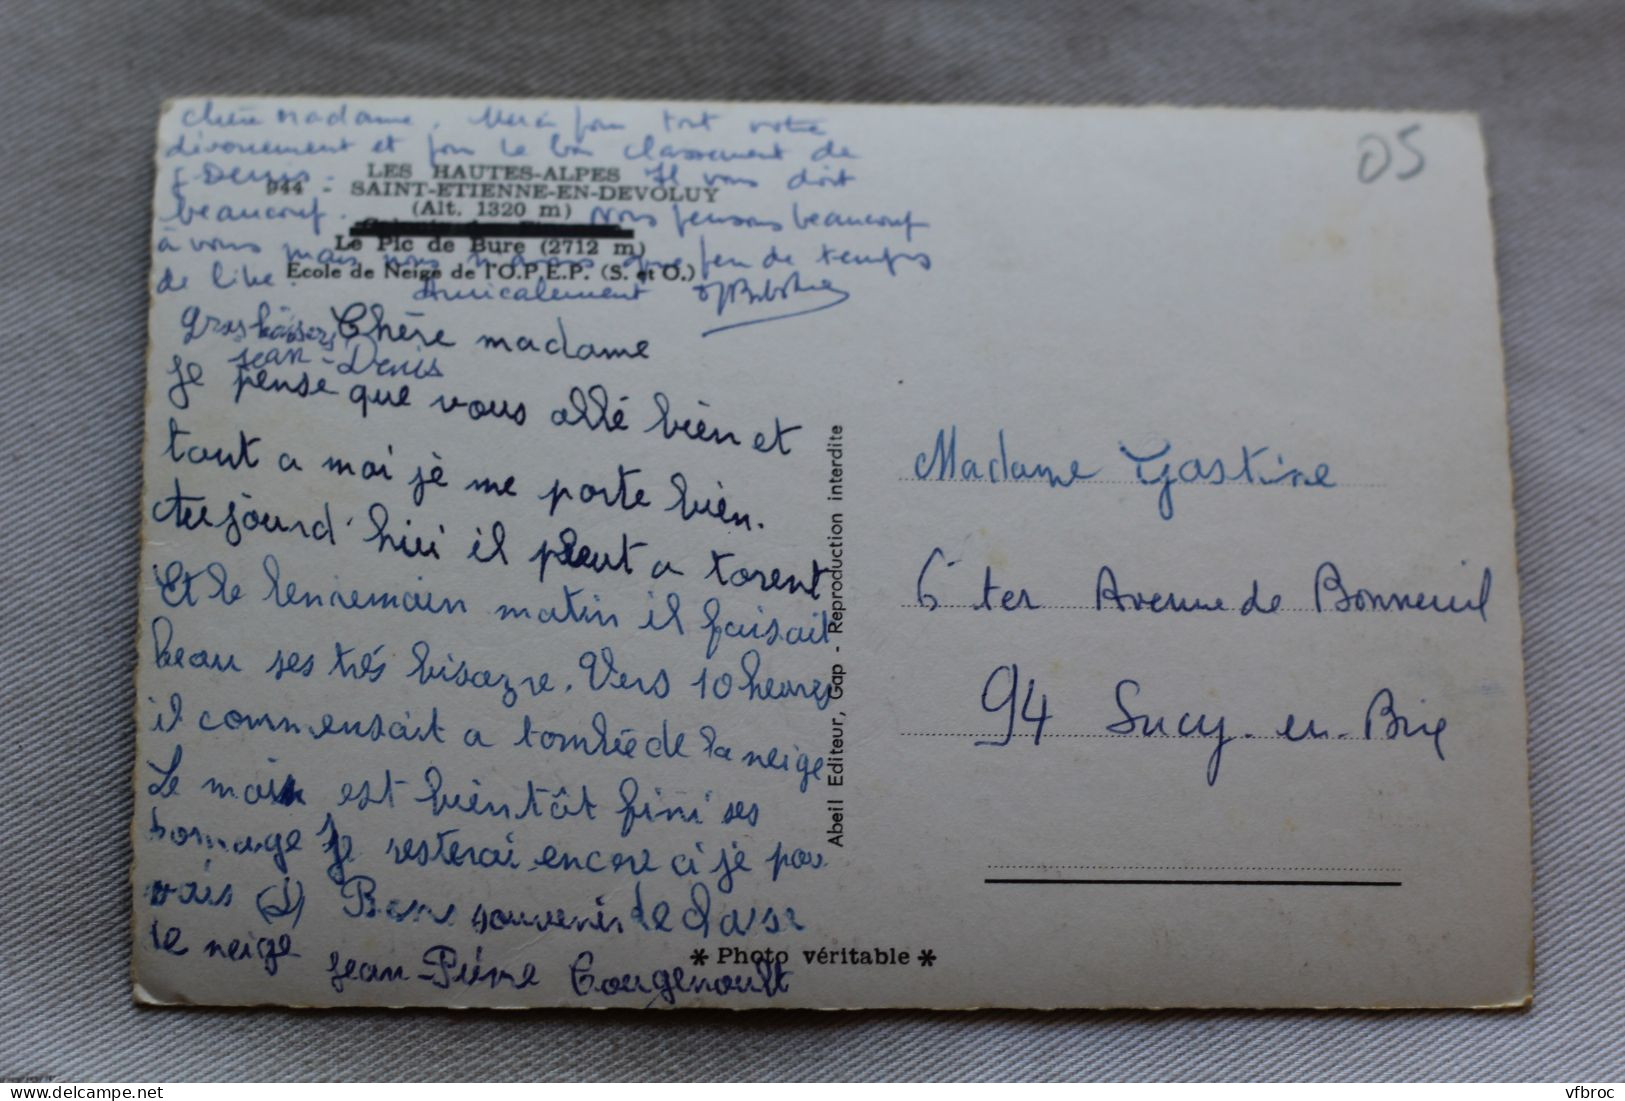 Chère Madame. Merci pour tout votre
dévouement et pour le bon classement de
J Denis. Il vous doit
beaucoup. Nous pensons beaucoup
à vous mais nous n'avons que peu de temps
de libre.
Amicalement
LES HAUTES-ALPES
944 - SAINT-ETIENNE-EN-DEVOLUY
(Alt. 1320 m)
Le Pic de Bure (2712 m)
Ecole de Neige de l'O.P.E.P. (S. et O.)
gros baisers
Jean-Denis
Chère madame
Je pense que vous allé bien et
tout a moi je me porte bien.
Aujourd'hui il pleut a torent
Et le lendemain matin il faisait
beau ses très bizazre. Vers 10 heures
il commensait a tombée de la neige
Le mois est bientôt fini ses
domage Je resterai encore ci je pou
vais (J) Bons souvenir de classe
de neige
Jean-Pierre Cougenoult
Abeil Editeur, Gap - Reproduction interdite
* Photo véritable *
05
Madame Gastine
6 ter Avenue de Bonneuil
94 Sucy-en-Brie
vfbroc